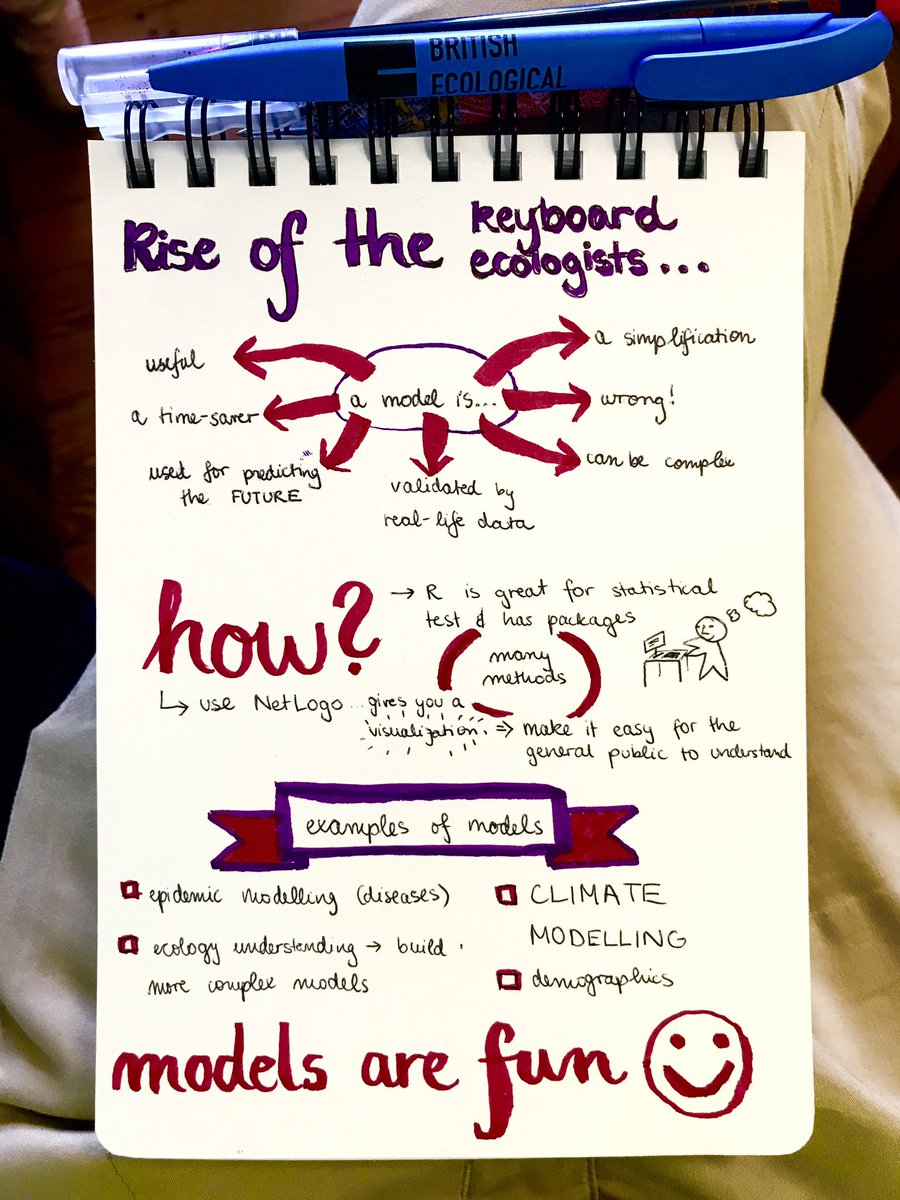 BRITISH
ECOLOGICAL
Rise of the keyboard
ecologists...
a model is...
useful
a time-saver
used for predicting
the FUTURE
validated by
real-life data
a simplification
wrong!
can be complex
how?
→ R is great for statistical
test & has packages
many
methods
↳ use NetLogo ... gives you a
visualization. ⇒ make it easy for the
general public to understand
examples of models
epidemic modelling (diseases)
ecology understanding → build
more complex models
CLIMATE
MODELLING
demographics
models are fun